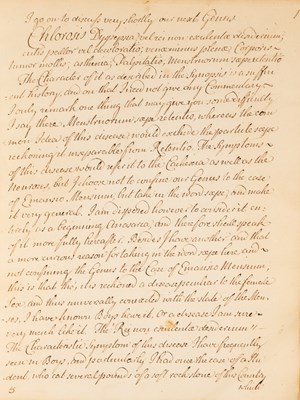 I go on to discuss very shortly our next Genus
Chlorosis Dyspepsia, vel rei non esculentæ desiderium,
cutis pallor vel decoloratio; venæ minus plenæ; Corporis
tumor mollis; asthenia; Palpitatio; Menstruorum sæpe retentio
The Character of it as described in the Synopsis is a suffici-
ent history, and on that I need not give any Commentary
I only remark one thing that may give you some difficulty
I say there Menstruorum sæpe retentio, whereas the com-
mon Idea of this disease would exclude the particle sæpe
reckoning it inseparable from Retentio. The Symptoms
of this disease would refer it to the Cachexia as well as the
Neuroses, but I chose not to confine our Genus to the case
of Emansio Mensium, but take in the word sæpe, and make
it very general. I am disposed however to consider it en-
tirely as a beginning Anasarca, and therefore shall speak
of it more fully hereafter. Besides I have another, and that
a more curious reason for taking in the word sæpe here, and
not confining the Genus to the Case of Emansio Mensium,
this is that tho' this reckoned a disease peculiar to the female
Sex, and thus universally connected with the state of the Men-
ses, I have known Boys have it, or a disease I am sure
very much like it. The Rei non esculentæ desiderium
The Characteristic Symptom of this disease I have frequently
seen in Boys, and particularly I had once the case of a Stu-
dent, who eat several pounds of a soft rock stone of this Country
5